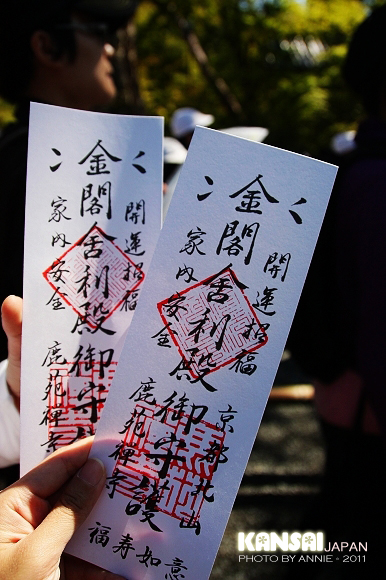 開運招福
金閣舎利殿御守
家内安全
鹿苑禅寺
開運招福
京都北山
金閣舎利殿御守護
家内安全
鹿苑禅寺
福寿如意
KANSAI JAPAN
PHOTO BY ANNIE - 2011